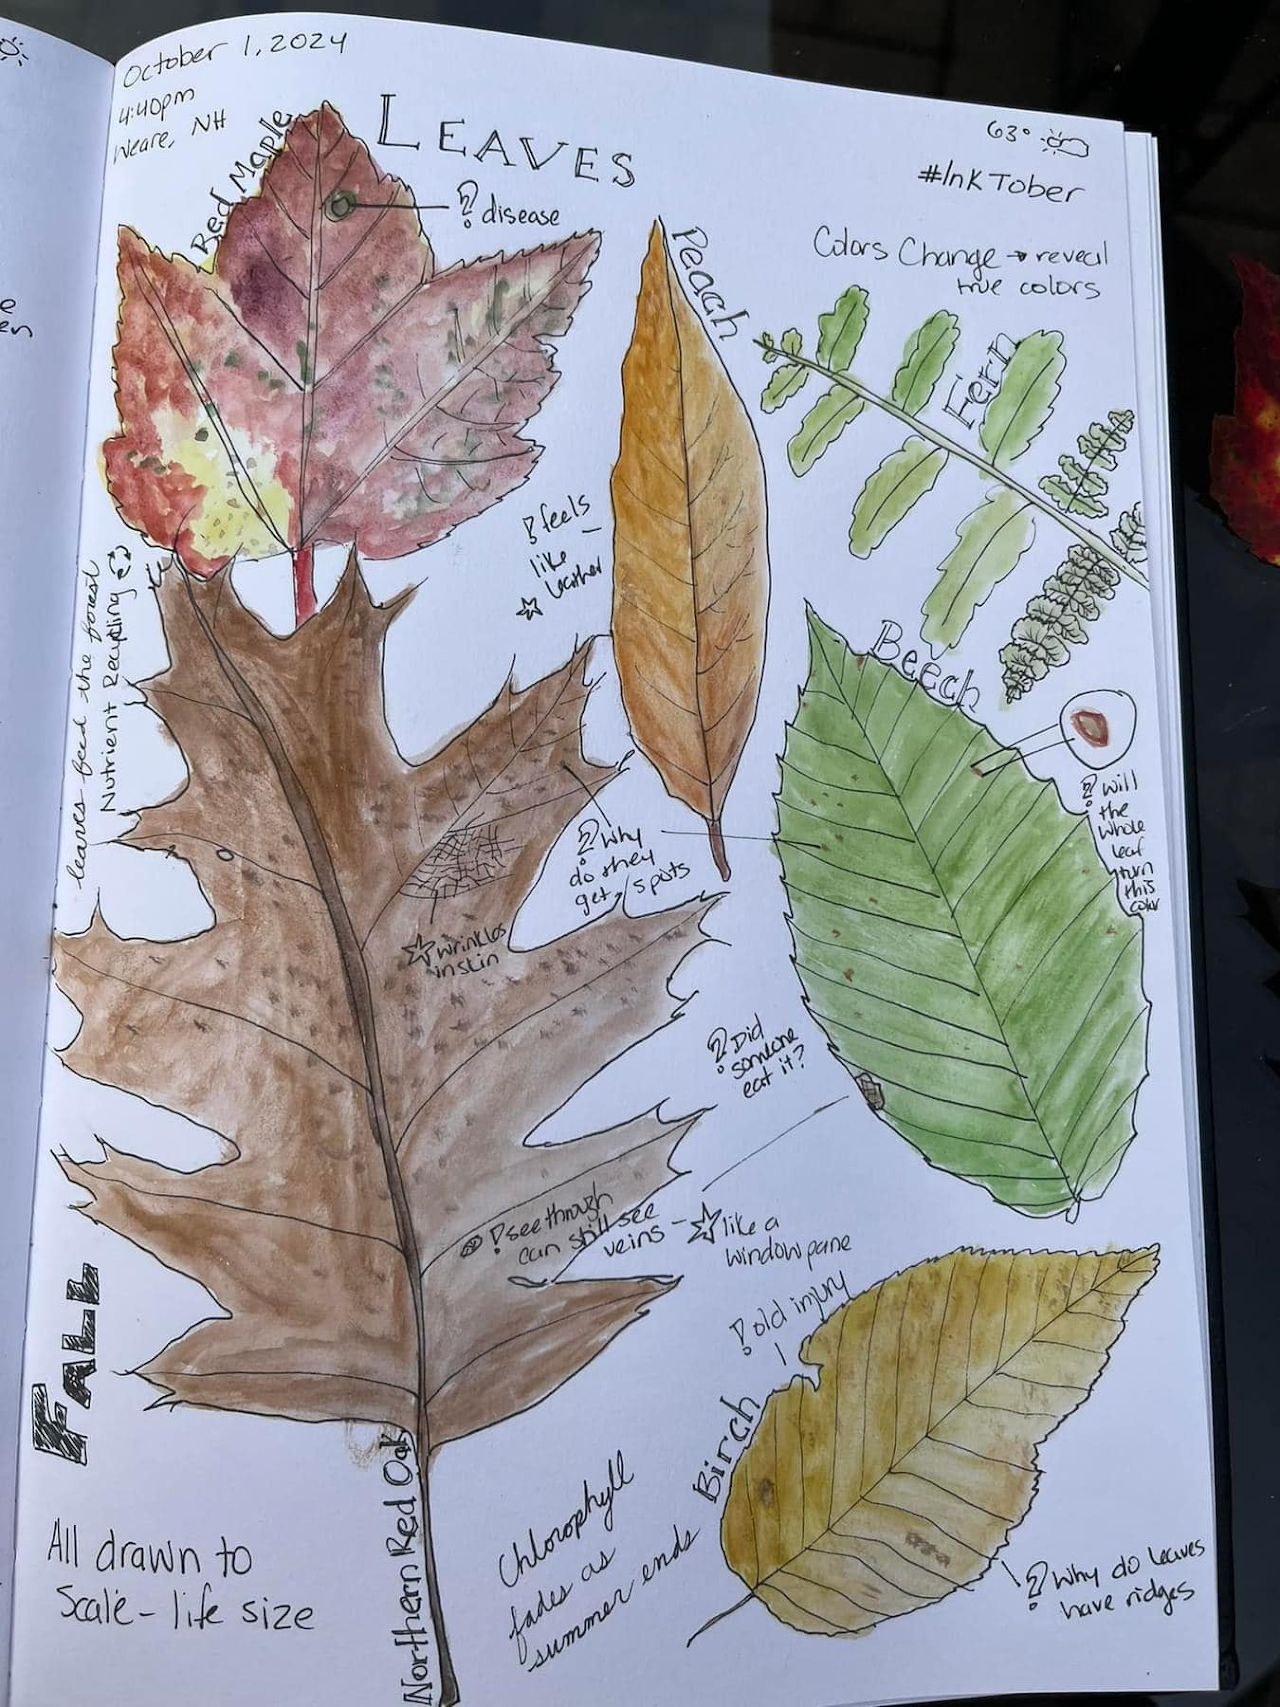 October 1, 2024
4:40pm
Weare, NH
LEAVES
63°
#InkTober
Red Maple
? disease
Colors Change → reveal
true colors
Peach
Fern
! feels
like
leather
leaves feed the forest
Nutrient Recycling
Beech
? Will
the
whole
leaf
turn
this
color
? why
do they
get spots
wrinkles
in skin
? Did
someone
eat it?
! see through
can still see
veins
like a
window pane
! old injury
Birch
FALL
Northern Red Oak
Chlorophyll
fades as
summer ends
? Why do leaves
have ridges
All drawn to
Scale - life size